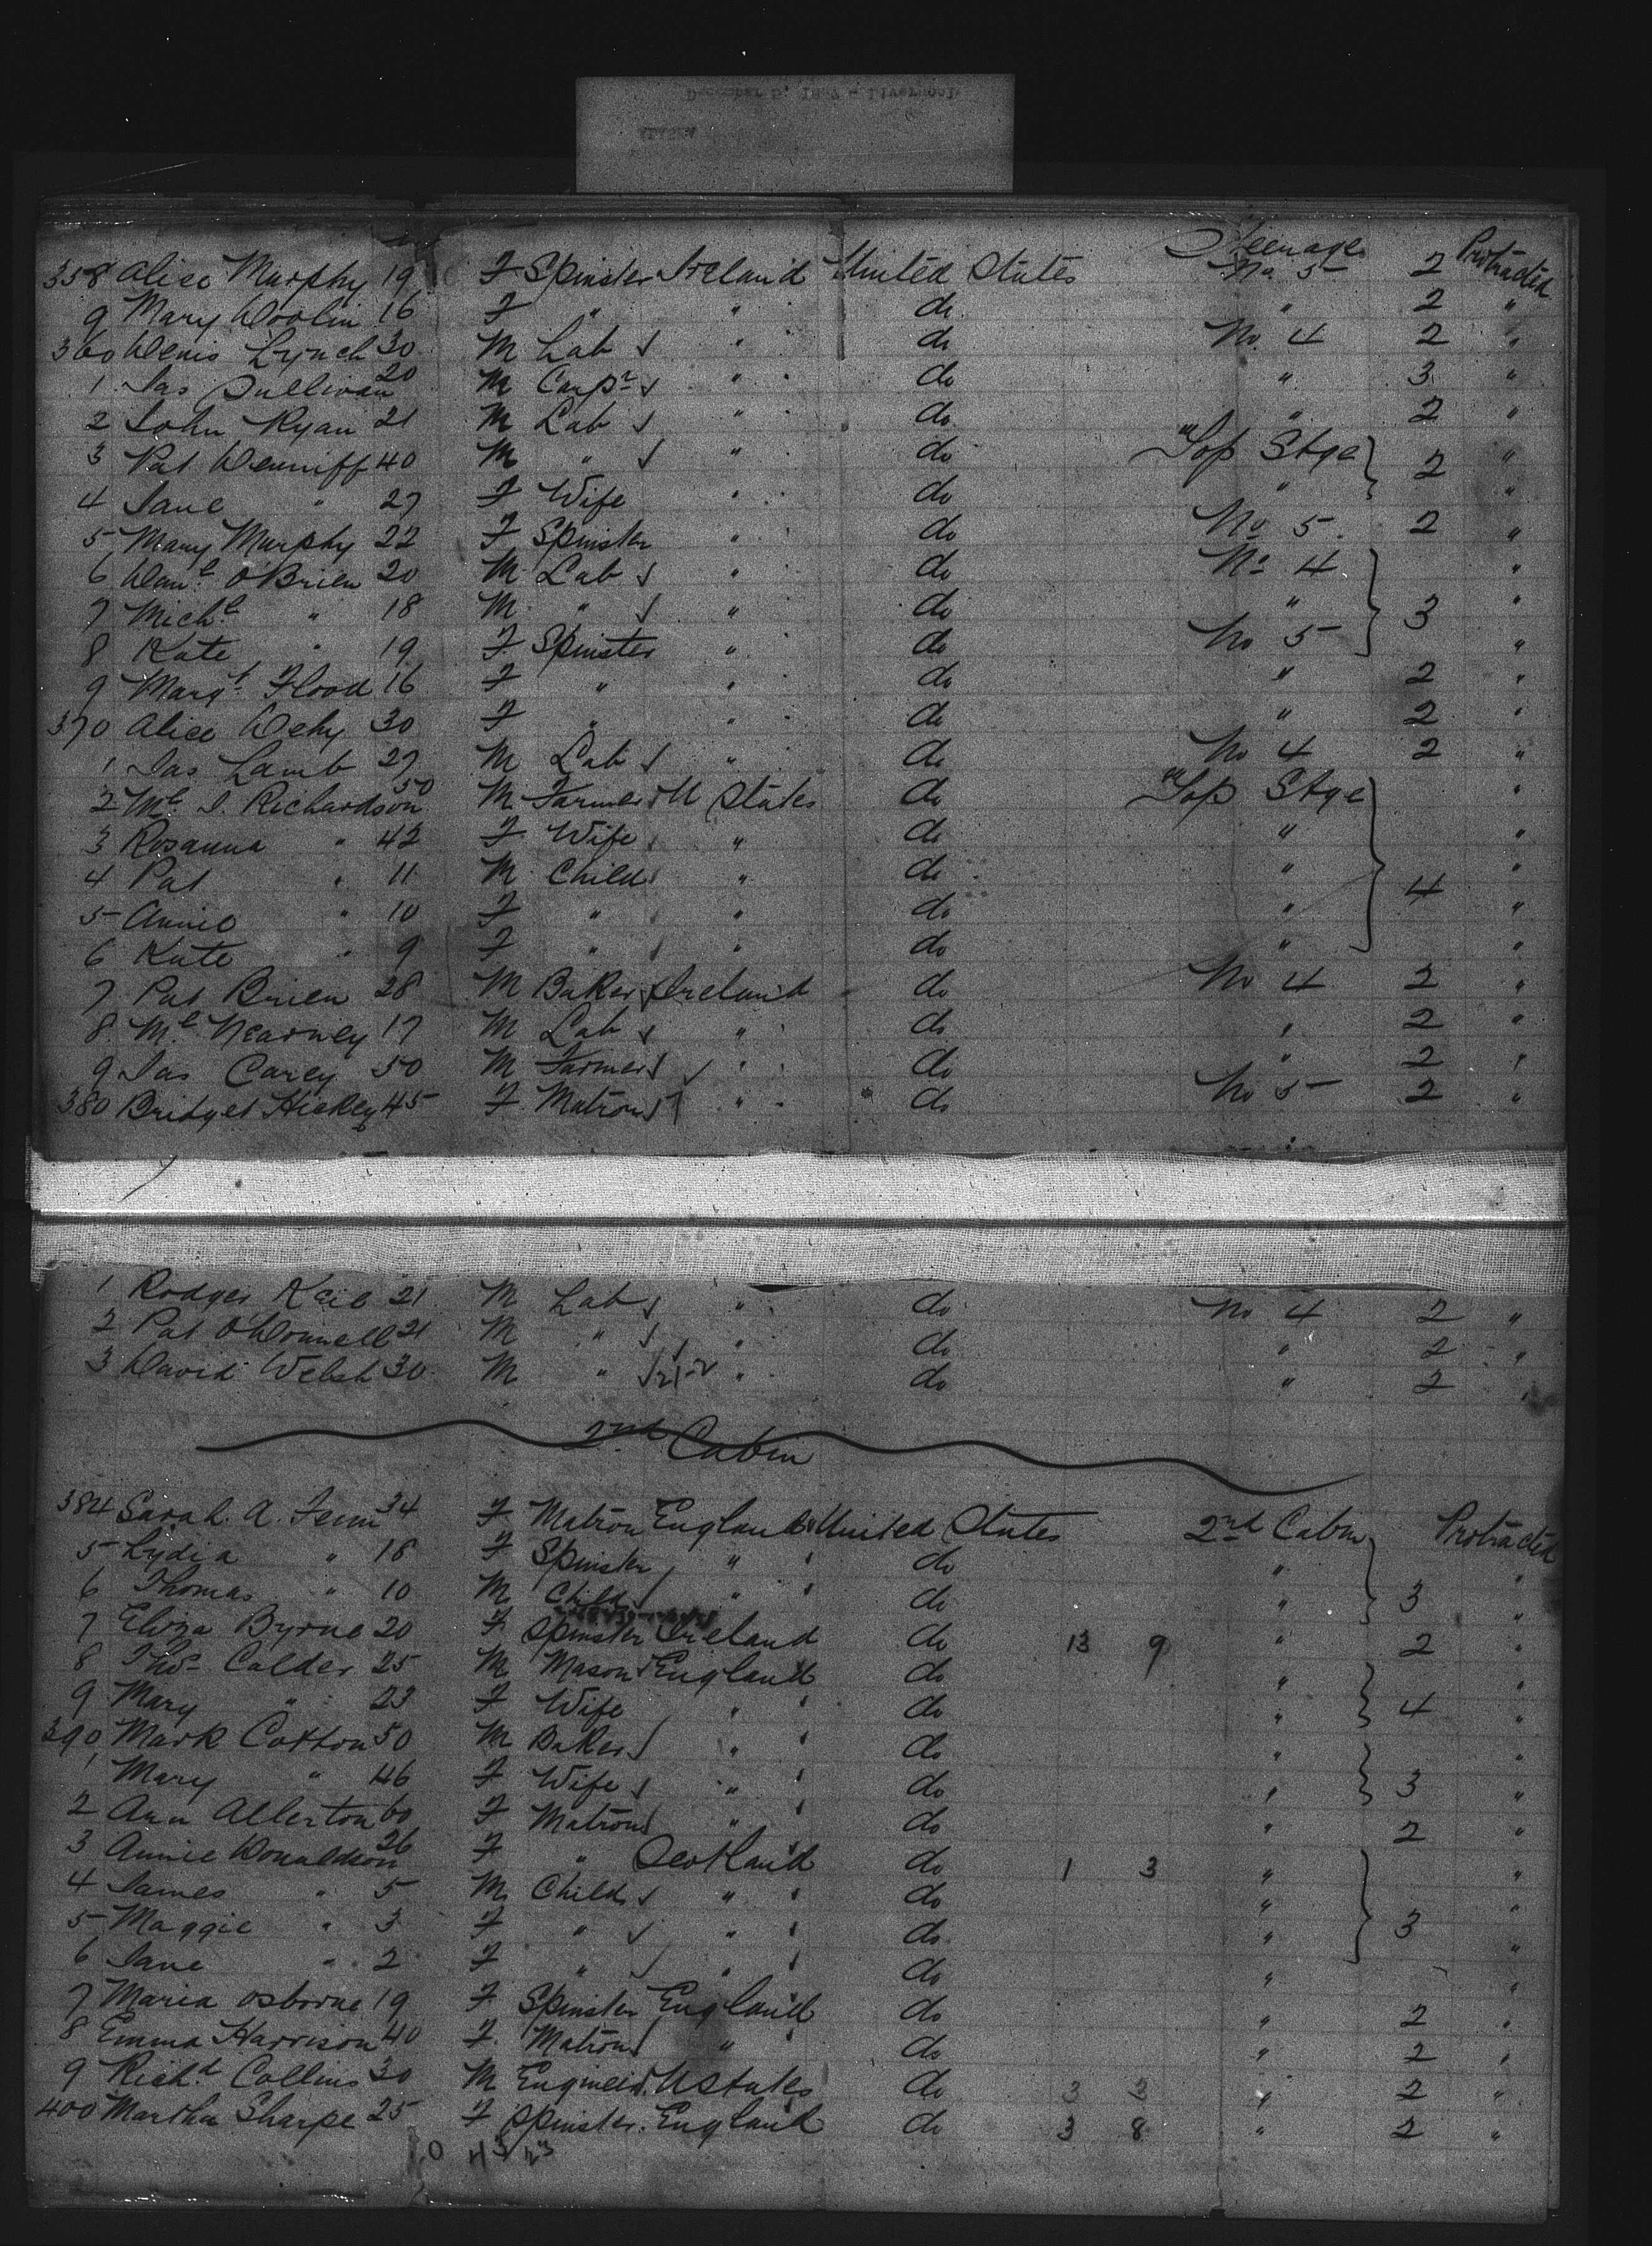 358 Alice Murphy 19 F Spinster Ireland United States Steerage No. 5 2 Protracted
9 Mary Doolin 16 F " " do " 2 "
360 Denis Lynch 30 M Lab " do No. 4 2 "
1 Jas Sullivan 20 M Carpr " do " 3 "
2 John Ryan 21 M Lab " do " 2 "
3 Pat 40 M " " do "Top Stge 2 "
4 Jane " 27 F Wife " do " "
5 Mary Murphy 22 F Spinster " do No 5 2 "
6 Danl O'Brien 20 M Lab " do No 4 "
7 Michl " 18 M " " do " 3 "
8 Kate " 19 F Spinster " do No 5 "
9 Margt Flood 16 F " " do " 2 "
370 Alice 30 F " " do " 2 "
1 Jas Lamb 27 M Lab " do No 4 2 "
2 Ml J. Richardson 50 M Farmer U States do "Top Stge "
3 Rosanna " 42 F Wife " do " "
4 Pat " 11 M Child " do " 4 "
5 Annie " 10 F " " do " "
6 Kate " 9 F " " do " "
7 Pat Brien 28 M Baker Ireland do No 4 2 "
8 Ml Kearney 17 M Lab " do " 2 "
9 Jas Carey 50 M Farmer " do " 2 "
380 Bridget Hickey 45 F Matron " do No 5 2 "
1 Rodger 21 M Lab " do No 4 2 "
2 Pat O'Donnell 21 M " " do " 2 "
3 David Welsh 30 M " " do " 2 "
2nd Cabin
384 Sarah. A. Fenn 34 F Matron England United States 2nd Cabin Protracted
5 Lydia " 18 F Spinster " do " "
6 Thomas " 10 M Child " do " 3 "
7 Eliza Byrne 20 F Spinster Ireland do 13 9 " 2 "
8 Thos Calder 25 M Mason England do " "
9 Mary " 23 F Wife " do " 4 "
390 Mark Cotton 50 M Baker " do " "
1 Mary " 46 F Wife " do " 3 "
2 Ann Allerton 60 F Matron " do " 2 "
3 Annie Donaldson 26 F " Scotland do 1 3 " "
4 James " 5 M Child " do " "
5 Maggie " 3 F " " do " 3 "
6 Jane " 2 F " " do " "
7 Maria Osborne 19 F Spinster England do " 2 "
8 Emma Harrison 40 F Matron " do " 2 "
9 Richd Collins 30 M Engineer U States do 3 3 " 2 "
400 Martha Sharpe 25 F Spinster England do 3 8 " 2 "